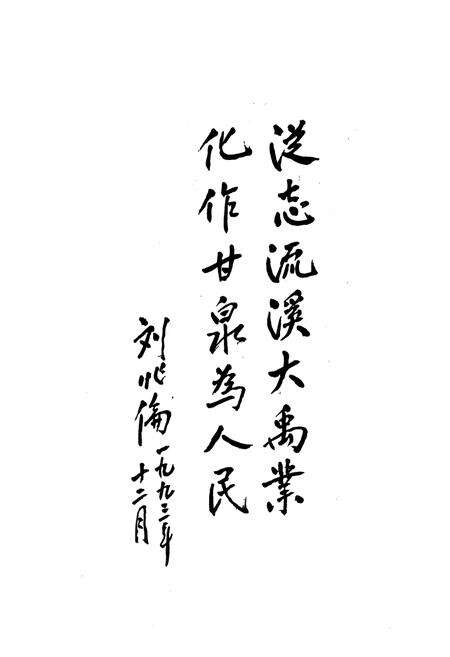 従志流溪大禹業
化作甘泉為人民
刘兆倫
一九九三年
十二月